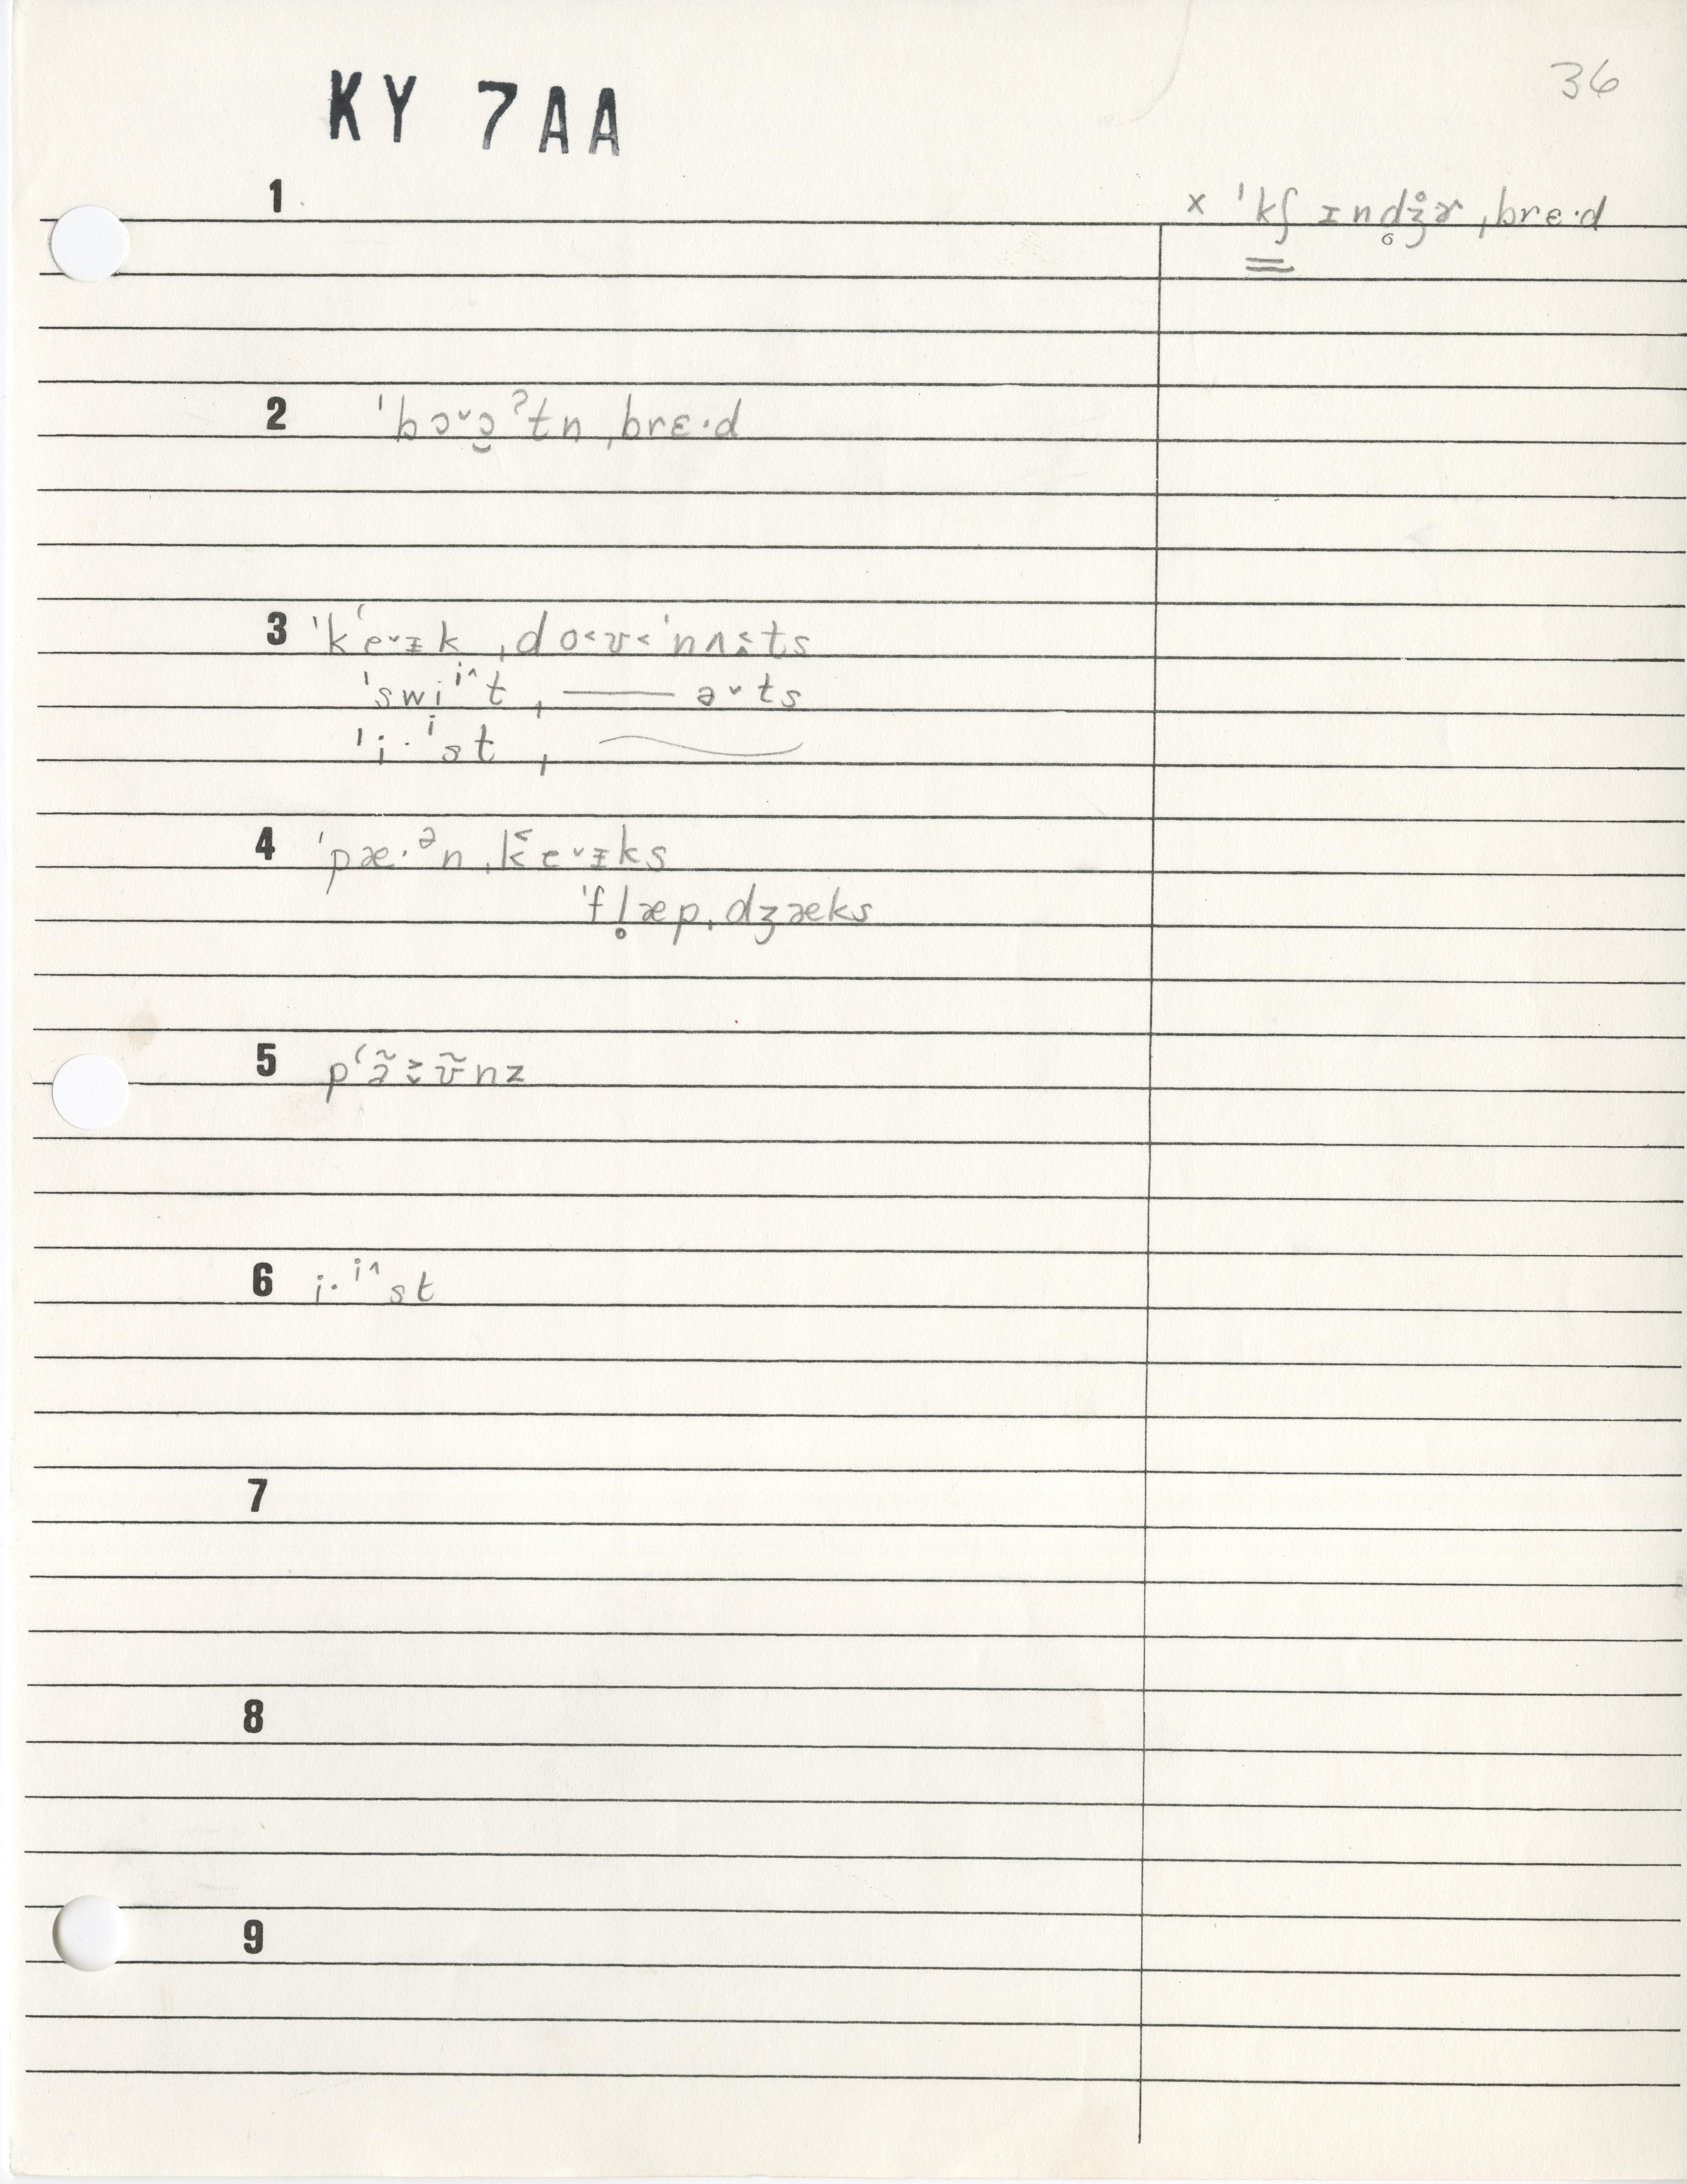 36
KY 7AA
1 x ˈkʃ ɪnd̥ʒ̊ɚ ˌbrɛ·d
2 ˈbɔˇɔ̯ˀtn ˌbrɛ·d
3 ˈkʻeˇɪk ˌdo˂ʊ˂ˈnʌ˂̭ts
ˈswiⁱ^t ˌ—— əˇts
ˈi·ⁱst ˌ
4 ˈpæ·ᵊn ˌk˂eˇɪks
ˈfl̥æp ˌdʒæks
5 pʻã˃̬ʊ̃nz
6 i·ⁱ^st
7
8
9